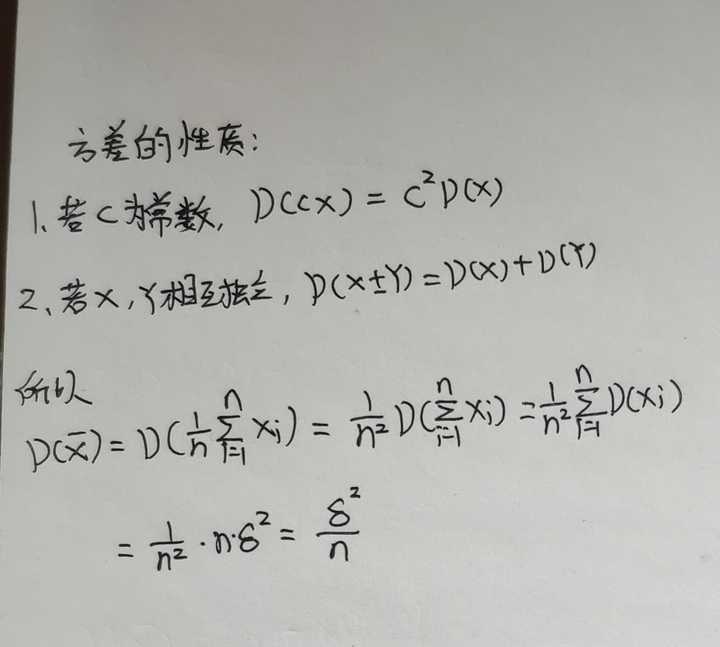 方差的性质:
1、若C为常数, D(CX) = C²D(X)
2、若X,Y相互独立, D(X±Y)=D(X)+D(Y)
所以
D(X̄) = D(1/n ∑ⁿᵢ₌₁ Xᵢ) = 1/n² D(∑ⁿᵢ₌₁ Xᵢ) = 1/n² ∑ⁿᵢ₌₁ D(Xᵢ)
= 1/n² · n·δ² = δ²/n